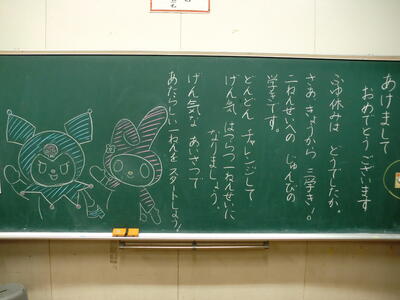 あけまして
おめでとう ございます
ふゆ休みは どうでしたか。
さあ きょうから 三学き!
二ねんせいへの じゅんびの
学きです。
どんどん チャレンジして
げん気 はつらつ 一ねんせいに
なりましょう。
げん気な あいさつで
あたらしい 一ねんを スタートしよう!